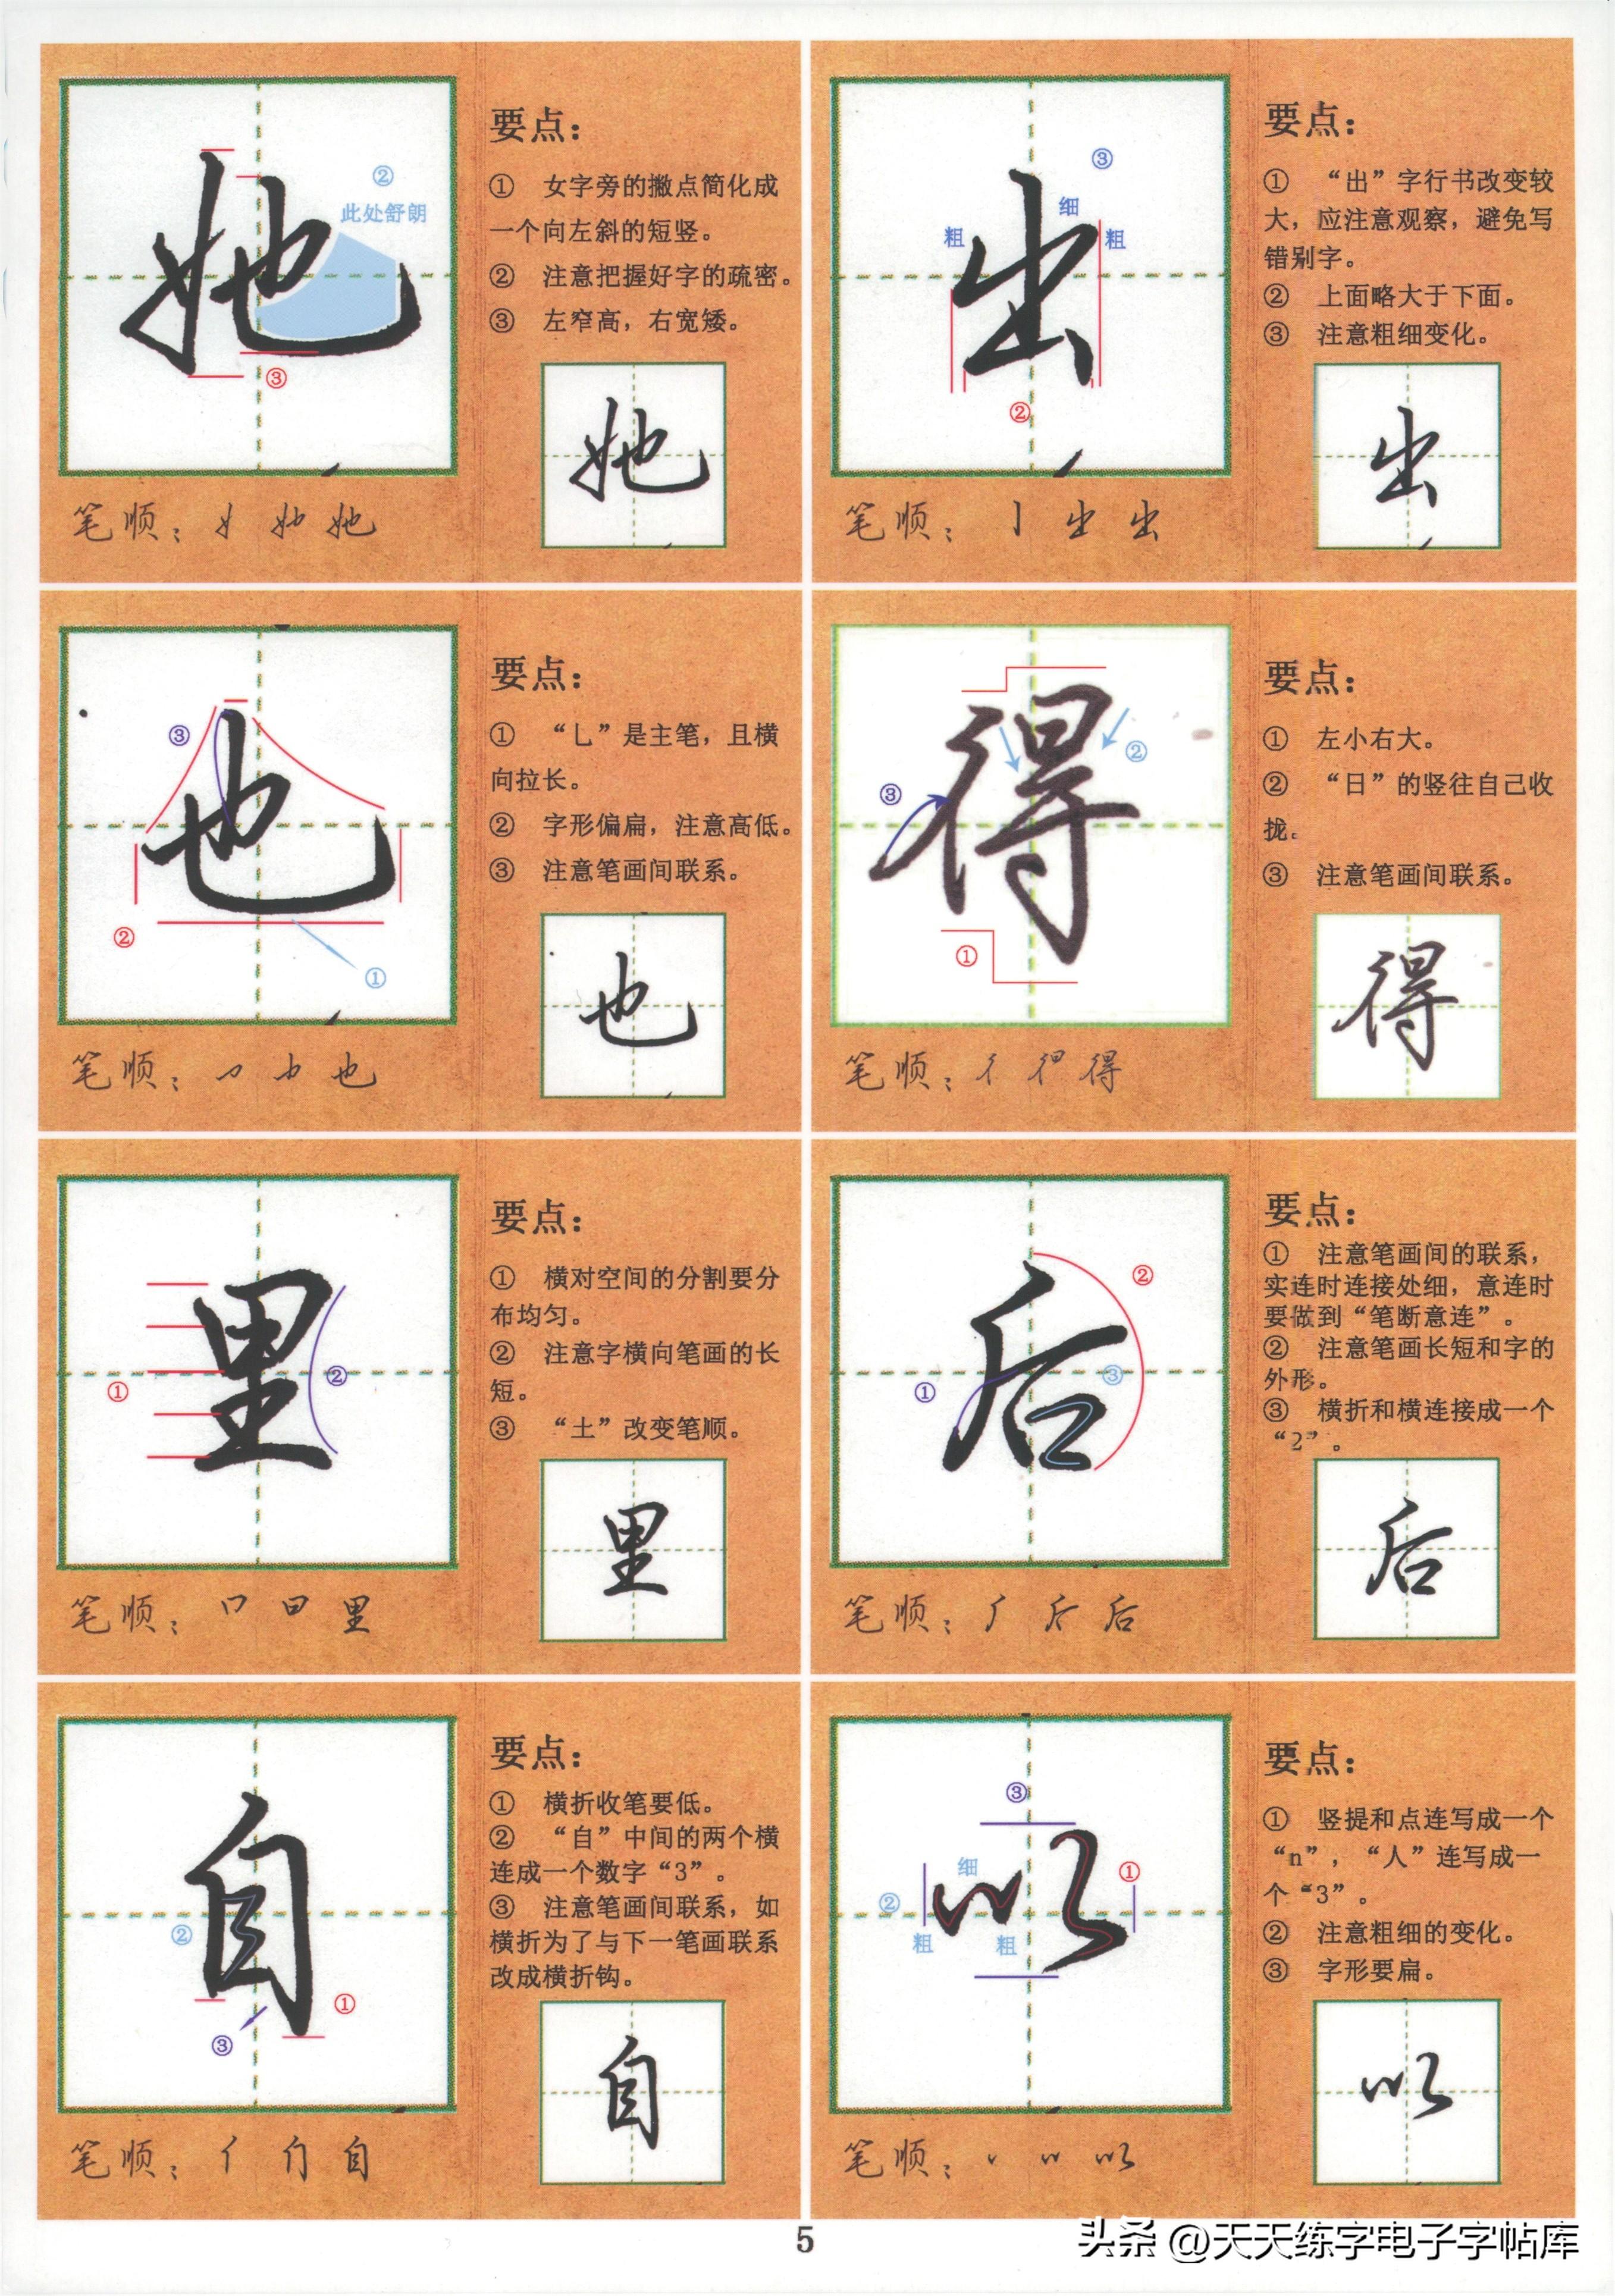 她
②
此处舒朗
③
要点：
① 女字旁的撇点简化成
一个向左斜的短竖。
② 注意把握好字的疏密。
③ 左窄高，右宽矮。
她
笔顺：
她
出
③
细
粗
粗
②
要点：
① “出”字行书改变较
大，应注意观察，避免写
错别字。
② 上面略大于下面。
③ 注意粗细变化。
出
笔顺：
出
也
③
②
①
要点：
① “乚”是主笔，且横
向拉长。
② 字形偏扁，注意高低。
③ 注意笔画间联系。
也
笔顺：
也
得
②
③
①
要点：
① 左小右大。
② “日”的竖往自己收
拢。
③ 注意笔画间联系。
得
笔顺：彳
得
里
①
②
要点：
① 横对空间的分割要分
布均匀。
② 注意字横向笔画的长
短。
③ “土”改变笔顺。
里
笔顺：
里
后
②
①
③
要点：
① 注意笔画间的联系，
实连时连接处细，意连时
要做到“笔断意连”。
② 注意笔画长短和字的
外形。
③ 横折和横连接成一个
“2”。
后
笔顺：
后
自
②
①
③
要点：
① 横折收笔要低。
② “自”中间的两个横
连成一个数字“3”。
③ 注意笔画间联系，如
横折为了与下一笔画联系
改成横折钩。
自
笔顺：
自
以
③
细
①
②
粗
粗
要点：
① 竖提和点连写成一个
“n”，“人”连写成一
个“3”。
② 注意粗细的变化。
③ 字形要扁。
以
笔顺：
以
5
头条 @天天练字电子字帖库